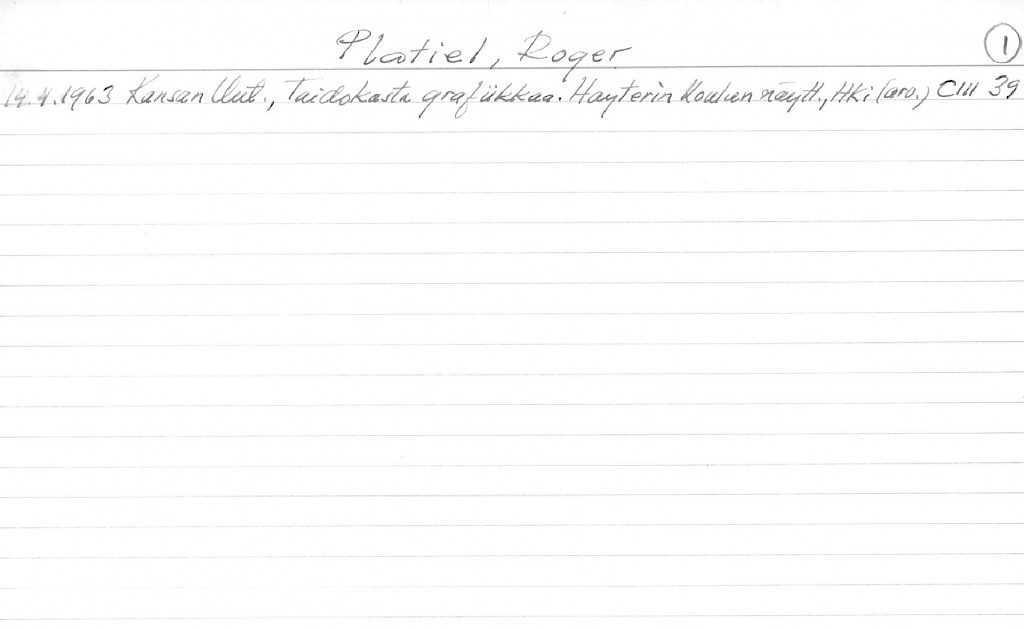 Platiel, Roger
1
14.4.1963 Kansan Uut., Taidokasta grafiikkaa. Hayterin koulun näytt., HKi (arv.) CIII 39